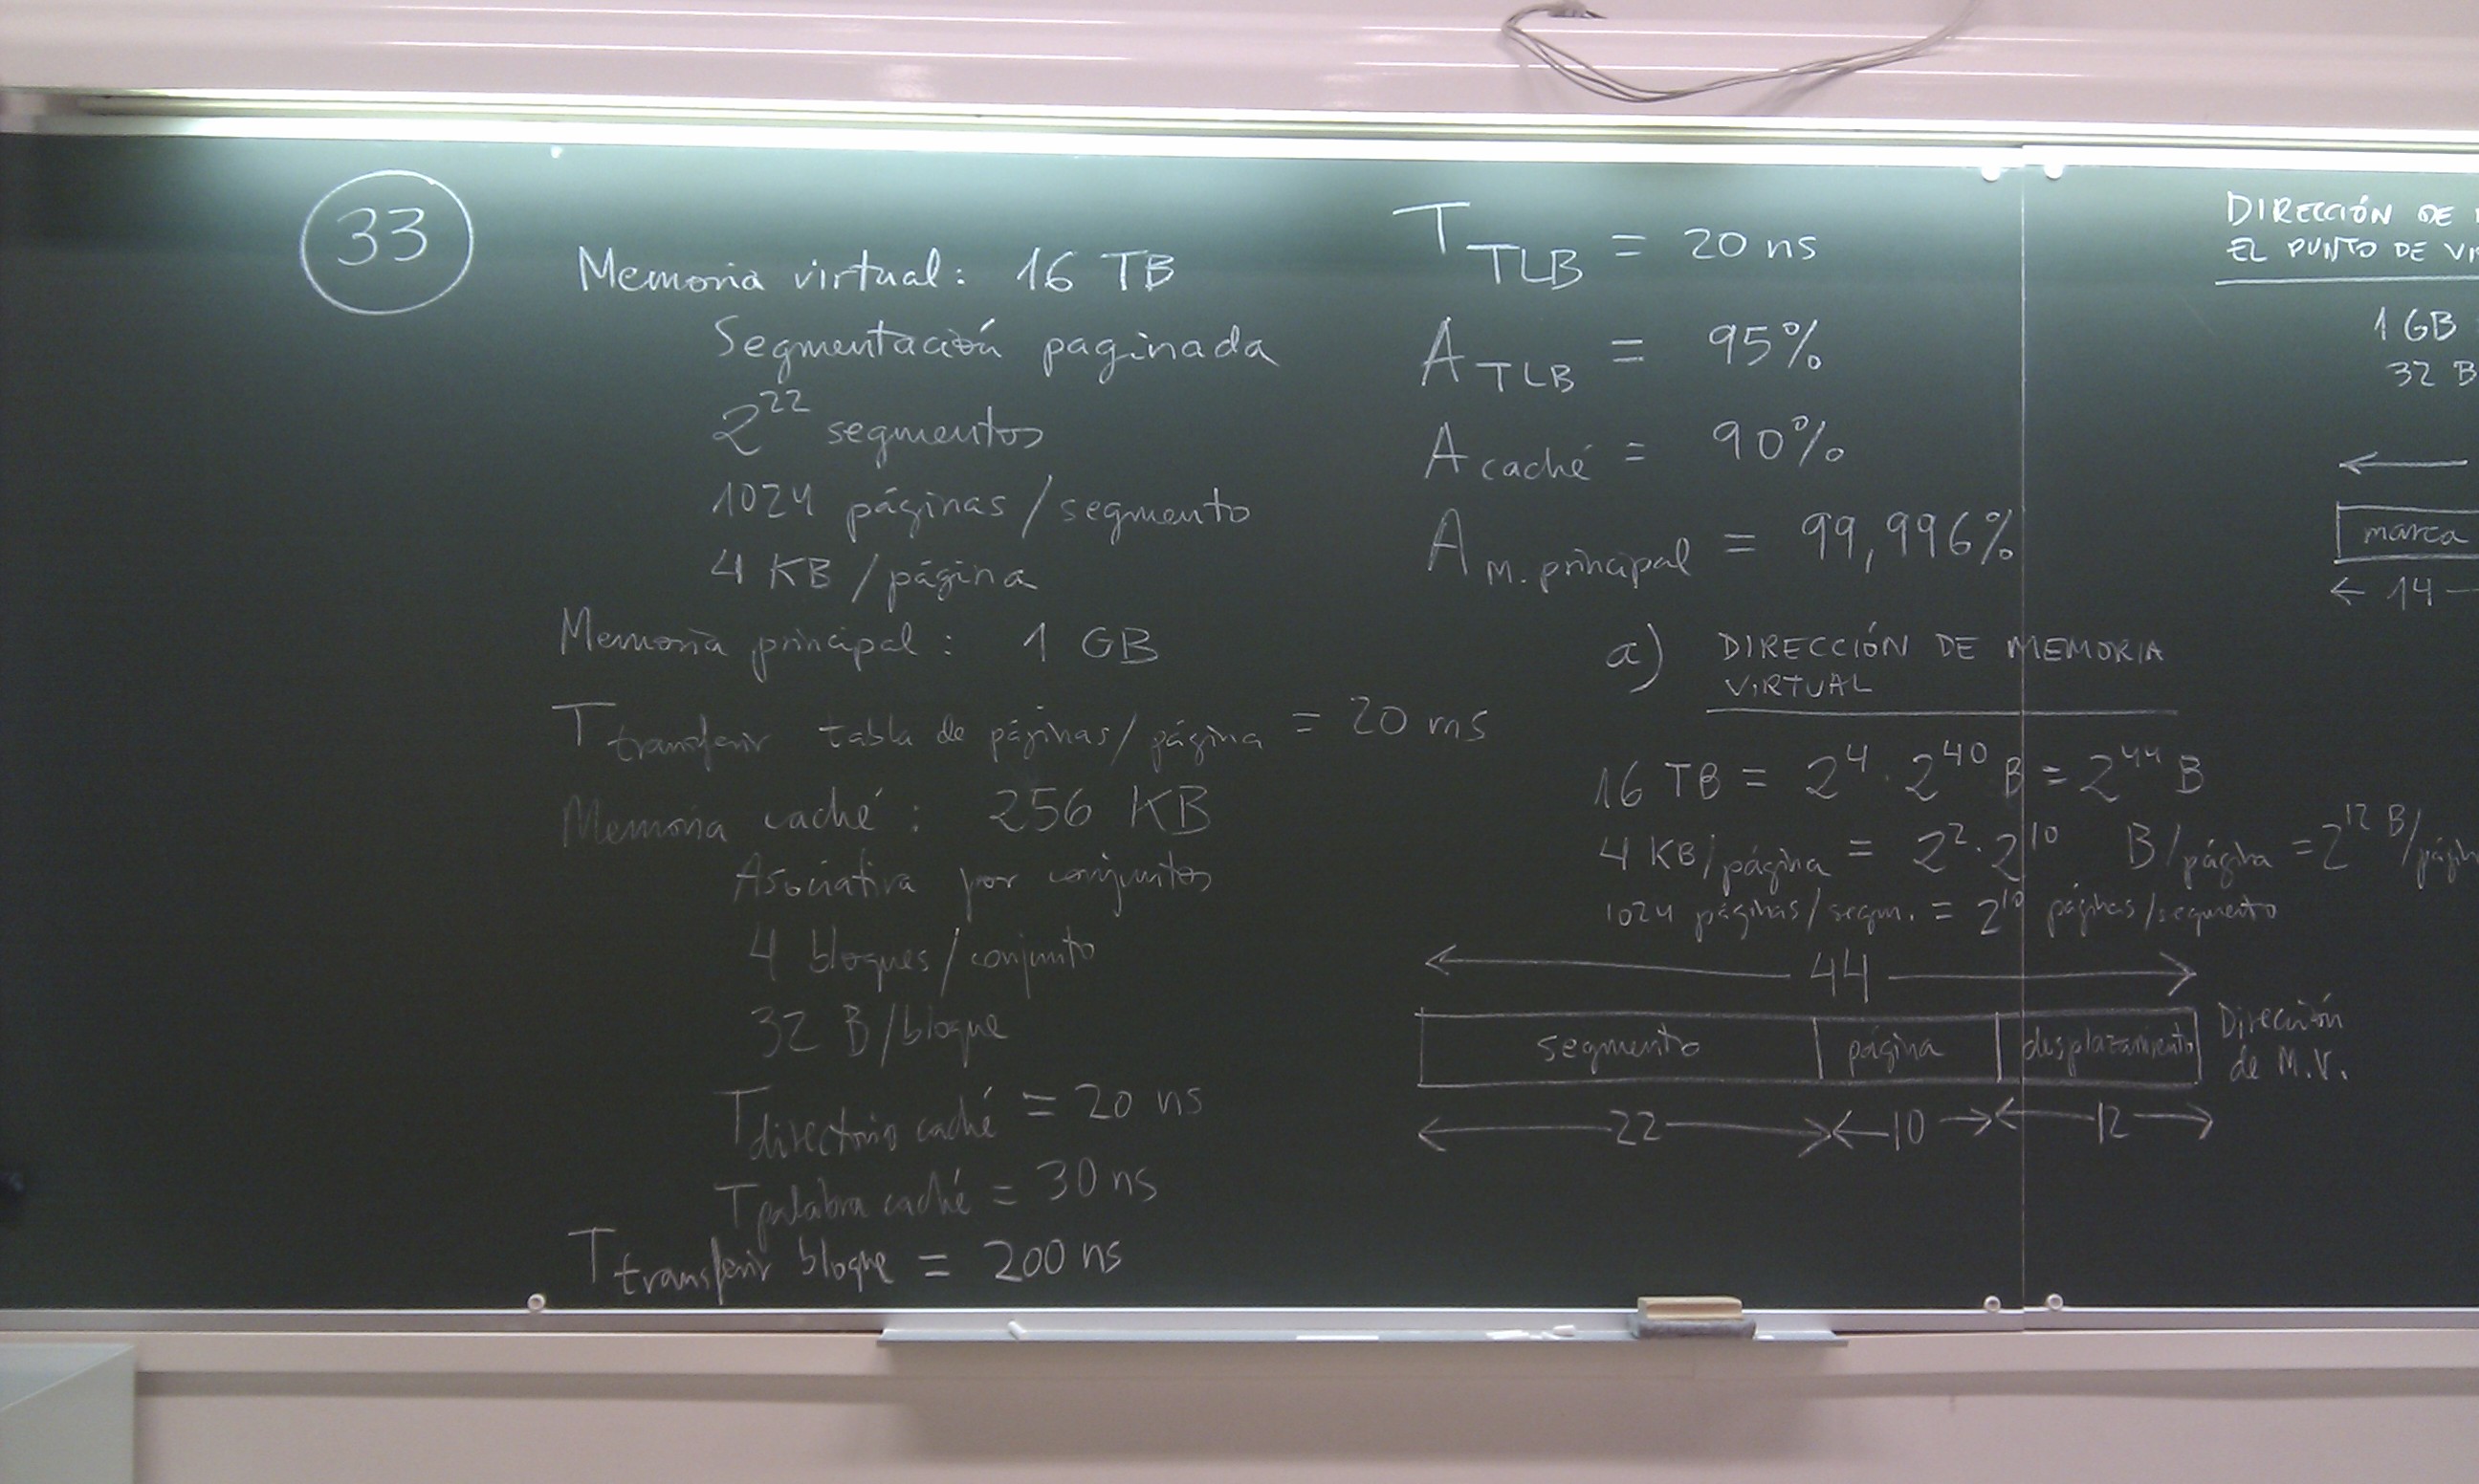 33
Memoria virtual: 16 TB
Segmentación paginada
2^22 segmentos
1024 páginas/segmento
4 KB/página
Memoria principal: 1 GB
T transferir tabla de páginas/página = 20 ms
Memoria caché: 256 KB
Asociativa por conjuntos
4 bloques/conjunto
32 B/bloque
T directorio caché = 20 ns
T palabra caché = 30 ns
T transferir bloque = 200 ns
T TLB = 20 ns
A TLB = 95%
A caché = 90%
A M. principal = 99,996%
a) DIRECCIÓN DE MEMORIA
VIRTUAL
16 TB = 2^4 · 2^40 B = 2^44 B
4 KB/página = 2^2 · 2^10 B/página = 2^12 B/págin
1024 páginas/segm. = 2^10 páginas/segmento
44
segmento página desplazamiento Dirección
de M.V.
22 10 12
DIRECCIÓN DE
EL PUNTO DE VI
1 GB
32 B
marca
14